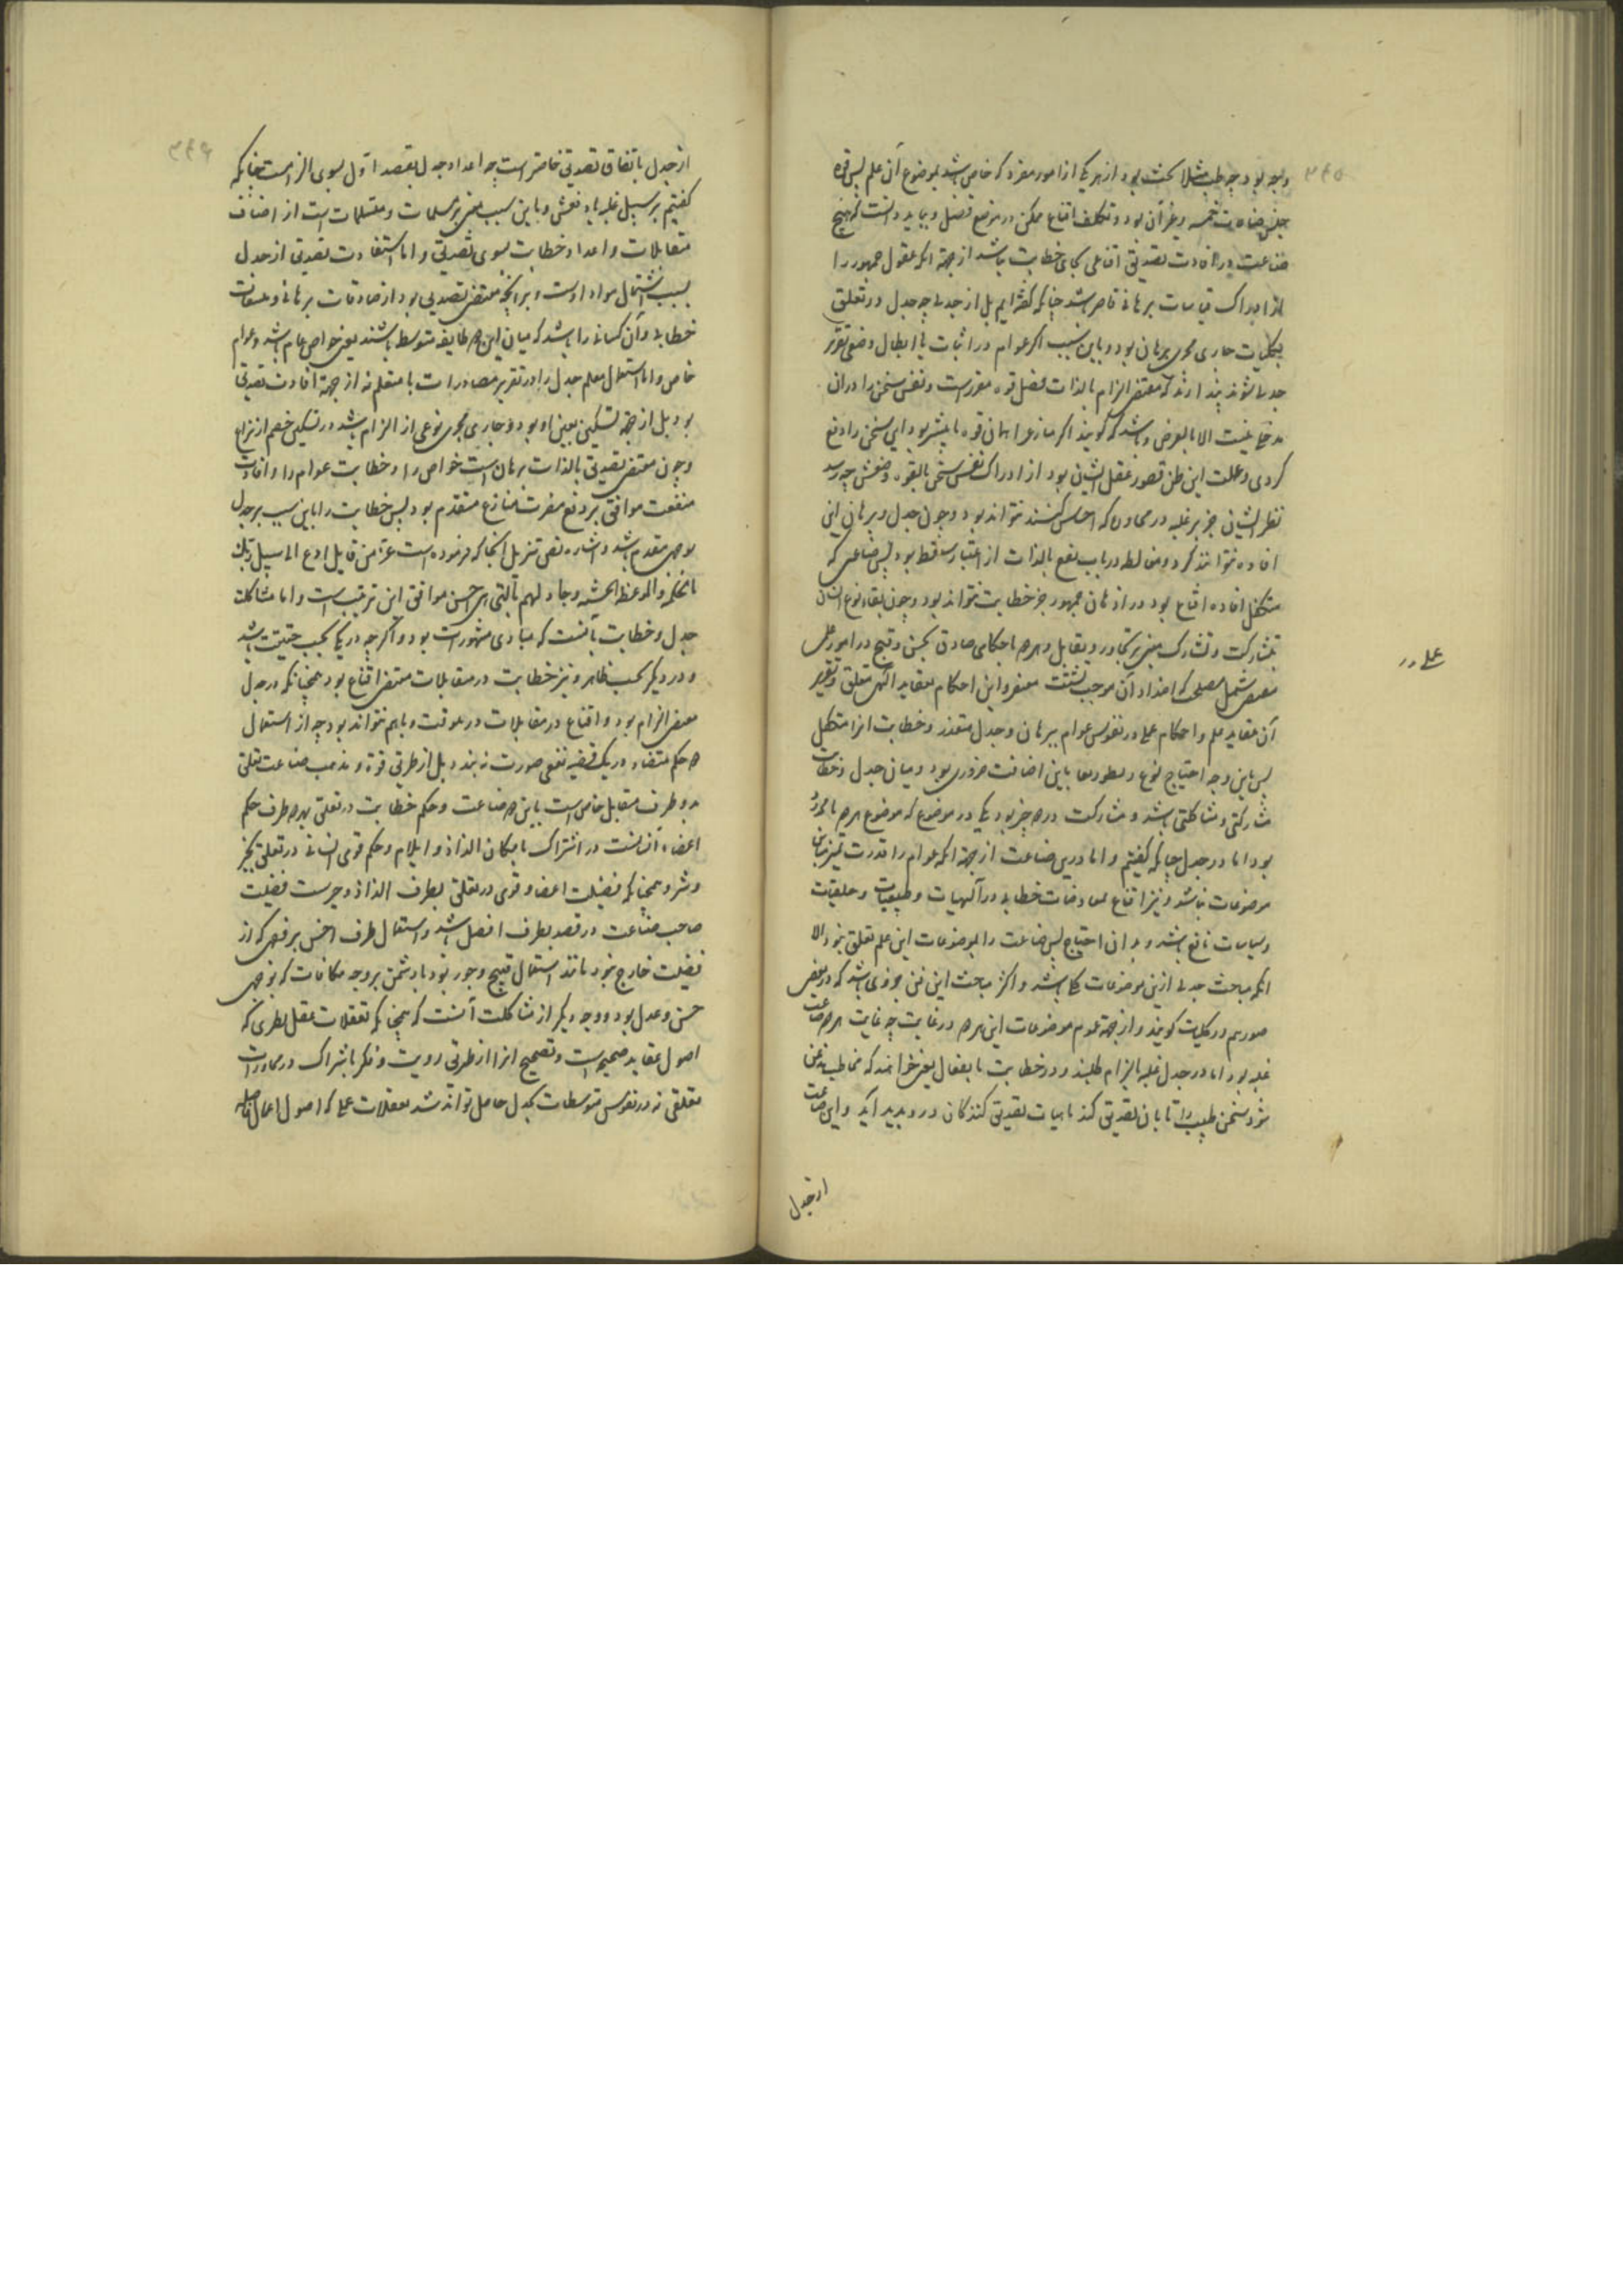 ۳۴۵
وجه بود چه طب مثلا بحث بود از هر یکی از امور مفرد که خاص باشد بموضوع آن علم پس قوه
و غیر آن بود و تکلف اقناع ممکن در موضع فصل و بباید دانست که هیچ
صناعت در افادت تصدیق اقناعی بجای خطابت نباشد از جهت آنکه عقول جمهور را
از ادراک قیاسات برهانی قاصر باشد چنانکه گفته‌ایم بل از جدلی چه جدل در تعلق
بکلیات جاری مجری برهان بود و باین سبب اگر عوام در اثبات یا ابطال وضعی تقریر
جدلی شنوند پندارند که مقتضی الزام بالذات فضل قوه مقررست و نفس سخن را در آن
مدخلی نیست الا بالعرض و باشد که گویند اگر منازع را همان قوه یا بیشتر بودی این سخن را دفع
کردی و علت این ظن قصور عقل ایشان بود از ادراک نفس سخن بالقوه و ضعفش چه رسد
نظر ایشان جز بر غلبه در محاورتی که احساس کنند نتواند بود و چون جدل و برهان این
افاده نتوانند کرد و مغالطه در باب نفع بالذات از اعتبار ساقط بود پس صناعتی که
متکفل افاده اقناع بود در اذهان جمهور جز خطابت نتواند بود و چون بقاء نوع انسان
بمشارکت و تشارک مبنی بر تجاور و تقابل و هر دو باحکامی صادق بحسن و قبح در امور عملی
مقتضی شمل مصلحی که اضداد آن موجب تشتت مفتقر و این احکام بعقاید الهی متعلق و تقریر
آن عقاید علم و احکام عملی در نفوس عوام ببرهان و جدل متعذر و خطابت آنرا متکفل
پس باین وجه احتیاج نوع باین اضافت ضروری بود و میان جدل و خطابت
مشارکتی و مشاکلتی باشد و مشارکت در دو چیز بود یکی در موضوع که موضوع هر دو نامحدود
بود اما در جدل چنانکه گفتیم و اما درین صناعت از جهت آنکه عوام را قدرت تمیز میان
موضوعات نباشد و نیز اقناع بصادقات خطابی در الهیات و طبیعیات و خلقیات
و سیاسات نافع باشد و بدان احتیاج پس صناعت را بموضوعات این علم تعلق بود الا
آنکه مباحث جدلی ازین موضوعات کلی باشد و اکثر مباحث این فن جزوی باشد که در بعض
صور هم در کلیات گویند و از جهت عموم موضوعات این هر دو در غایت چه غایت هر دو صناعت
غلبه بود اما در جدل غلبه بالزام طلبند و در خطابت بانفعال یعنی خواهند که مخاطب مذعن
شود سخن طبیب را تا بآن تصدیق کند یا هیات تصدیق کنندگان در و پدید آید و این صناعت
از جدل
عملی در
۳۴۶
از جدل باتفاق تصدیق خاص‌تر است چه اعداد جدل بقصد اول بسوی الزامست چنانکه
گفتیم بر سبیل غلبه یا دفعش و باین سبب مبنی بر مسلمات و متسلمات است از اصناف
متقابلات و اعداد خطابت بسوی تصدیق و اما استفادت تصدیق از جدل
بسبب اشتمال مواد اوست بر آنچه مقتضی تصدیق بود از صادقات برهانی و مقنعات
خطابی و آن کسانی را باشد که میان این دو طایفه متوسط باشند یعنی خواص عام باشند و عوام
خاص و اما استعمال معلم جدل را در تقریر مصادرات با متعلم نه از جهت افادت تصدیق
بود بل از جهت تسکین یعنی او بود و جاری مجری نوعی از الزام باشد در تسکین خصم از نزاع
و چون مقتضی تصدیق بالذات برهان است خواص را و خطابت عوام را و افادت
منفعت موافق بر دفع مضرت منازع متقدم بود پس خطابت را باین سبب بر جدل
بوجهی تقدم باشد و اشاره نص تنزیل آنجا که فرموده است عز من قایل ادع الی سبیل ربک
بالحکمة والموعظة الحسنة وجادلهم بالتی هی احسن موافق این ترتیب است و اما مشاکلت
جدل و خطابت بآنست که مبادی مشهورات بود و اگر چه در یکی بحسب حقیقت باشد
و در دیگر بحسب ظاهر و نیز خطابت در متقابلات مقتضی اقناع بود همچنانکه در جدل
مقتضی الزام بود و اقناع در متقابلات در یک وقت و با هم نتواند بود چه از استعمال
دو حکم متضاد در یک قضیه نفعی صورت نبندد بل از طریق قوه و مذهب صناعت تعلق
بدو طرف متقابل خاص است باین دو صناعت و حکم خطابت در تعلق بهر دو طرف حکم
اعضاء آن است در اشتراک بامکان الذاذ و ایلام و حکم قوی انسانی در تعلق بخیر
و شر و همچنانکه فضیلت اعضا و قوی در تعلق بطرف الذاذ و خیرست فضیلت
صاحب صناعت در قصد بطرف افضل باشد و استعمال طرف اخس بر وجهی که از
فضیلت خارج نبود مانند استعمال قبیح و جور بود با دشمن بر وجه مکافات که بوجهی
حسن و عدل بود و وجه دیگر از مشاکلت آنست که همچنانکه تعقلات عقل نظری که
اصول عقاید صحیح است و تصحیح آنرا از طریق رویت و فکر باشتراک در محاورات
تعلقی نه در نفوس متوسطات بجدل حاصل تواند شد تعقلات عملی که اصول اعمال فاضله